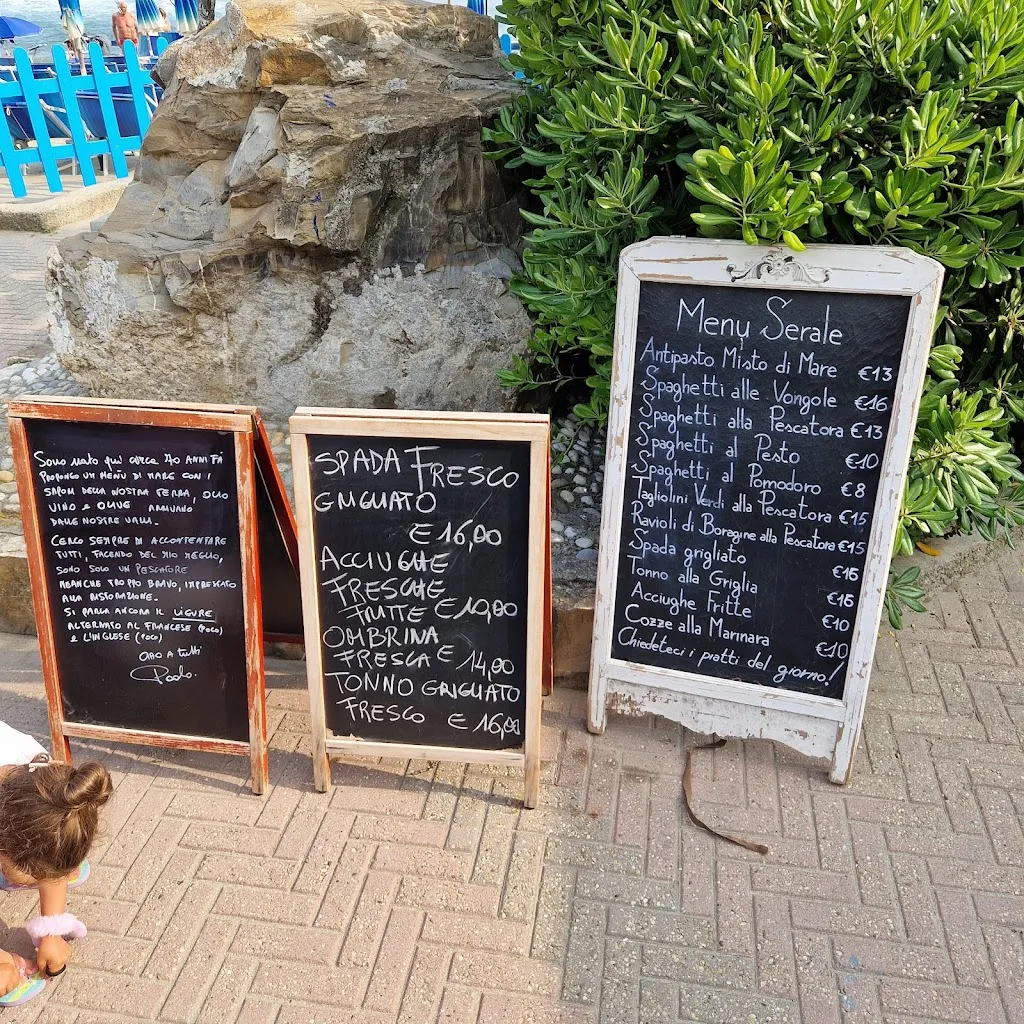 Sono nato qui circa 70 anni fa
Propongo un menù di mare con i
sapori della nostra terra, olio
vino e olive arrivano
dalle nostre valli.
Cerco sempre di accontentare
tutti, facendo del mio meglio,
sono solo un pescatore
neanche troppo bravo, imprestato
alla ristorazione.
Si parla ancora il ligure
alternato al francese (poco)
e l'inglese (poco)
Ciao a tutti
Paolo.
SPADA FRESCO
GRIGLIATO
€ 16,00
ACCIUGHE
FRESCHE
FRITTE € 10,00
OMBRINA
FRESCA € 14,00
TONNO GRIGLIATO
FRESCO € 16,00
Menu Serale
Antipasto Misto di Mare €13
Spaghetti alle Vongole €16
Spaghetti alla Pescatora €13
Spaghetti al Pesto €10
Spaghetti al Pomodoro €8
Tagliolini Verdi alla Pescatora €15
Ravioli di Boragine alla Pescatora €15
Spada grigliato €16
Tonno alla Griglia €16
Acciughe Fritte €10
Cozze alla Marinara €10
Chiedeteci i piatti del giorno!